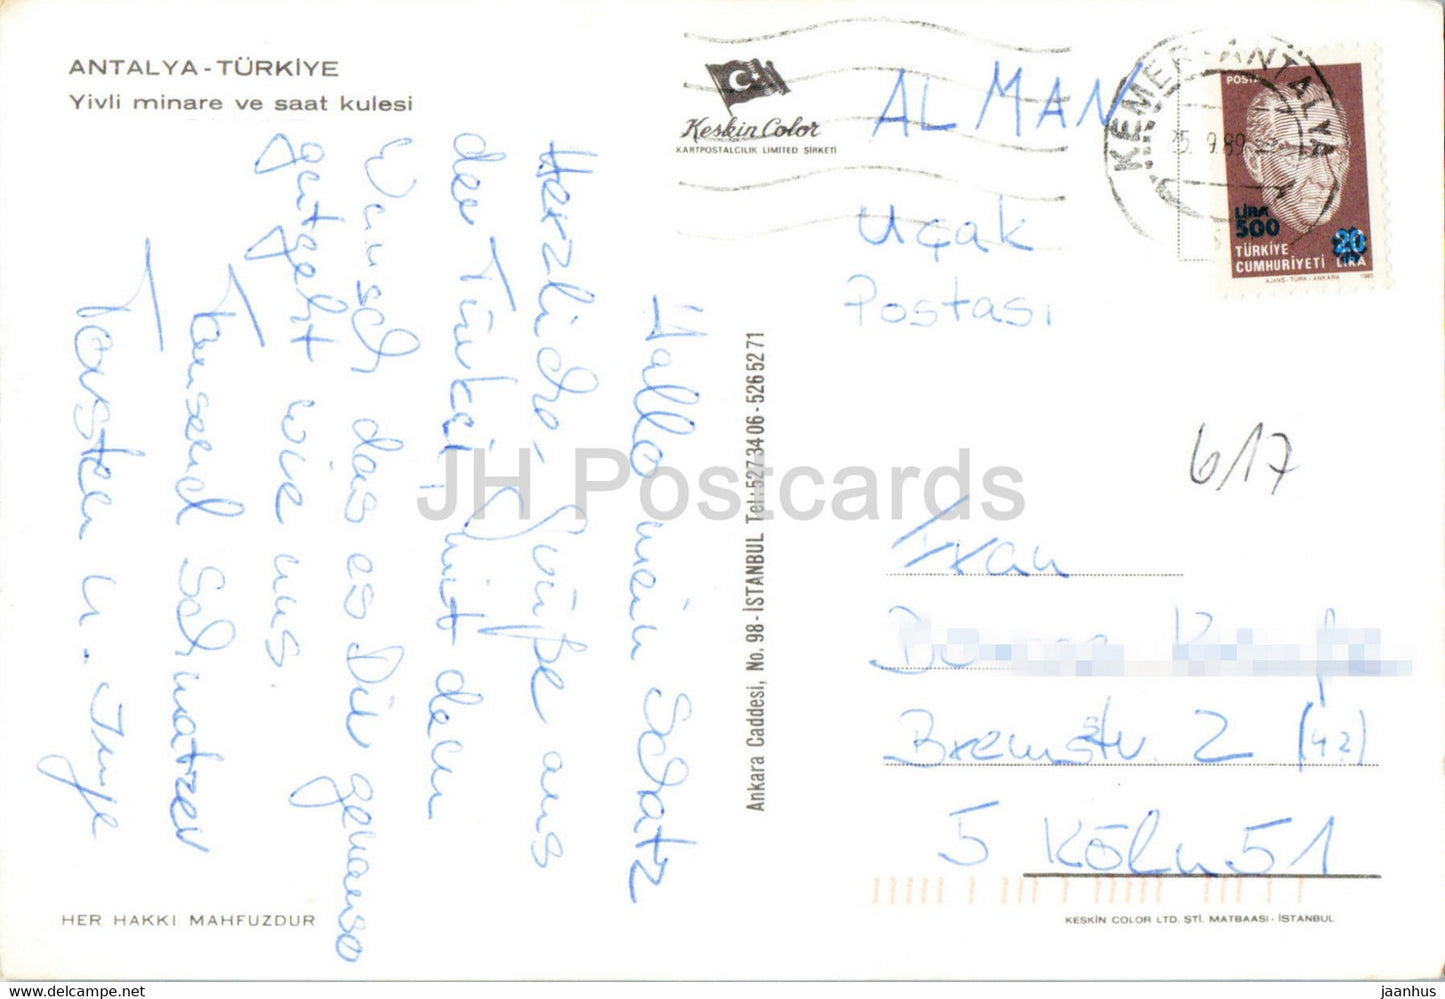 ANTALYA - TÜRKİYE
Yivli minare ve saat kulesi
Hallo mein Schatz
Herzliche Grüße aus
der Türkei, mit dem
Wunsch das es Dir genauso
gut geht wie uns.
Tausend Schmatzer
Torsten u. Inge
HER HAKKI MAHFUZDUR
Keskin Color
KARTPOSTALCILIK LIMITED ŞİRKETİ
Ankara Caddesi, No. 98 - İSTANBUL Tel: 527 34 06 - 526 52 71
ALMAN
Uçak
Postası
KEMER-ANTALYA
25. 9.89
POSTA
LİRA
500
20
TÜRKİYE
CUMHURİYETİ LİRA
AJANS-TÜRK / ANKARA 1985
6/17
Frau
Bremstr. 2 (42)
5 Köln 51
KESKİN COLOR LTD. ŞTİ. MATBAASI - İSTANBUL
JH Postcards
www.hippostcard.com/store/jaanhus
jaanhus